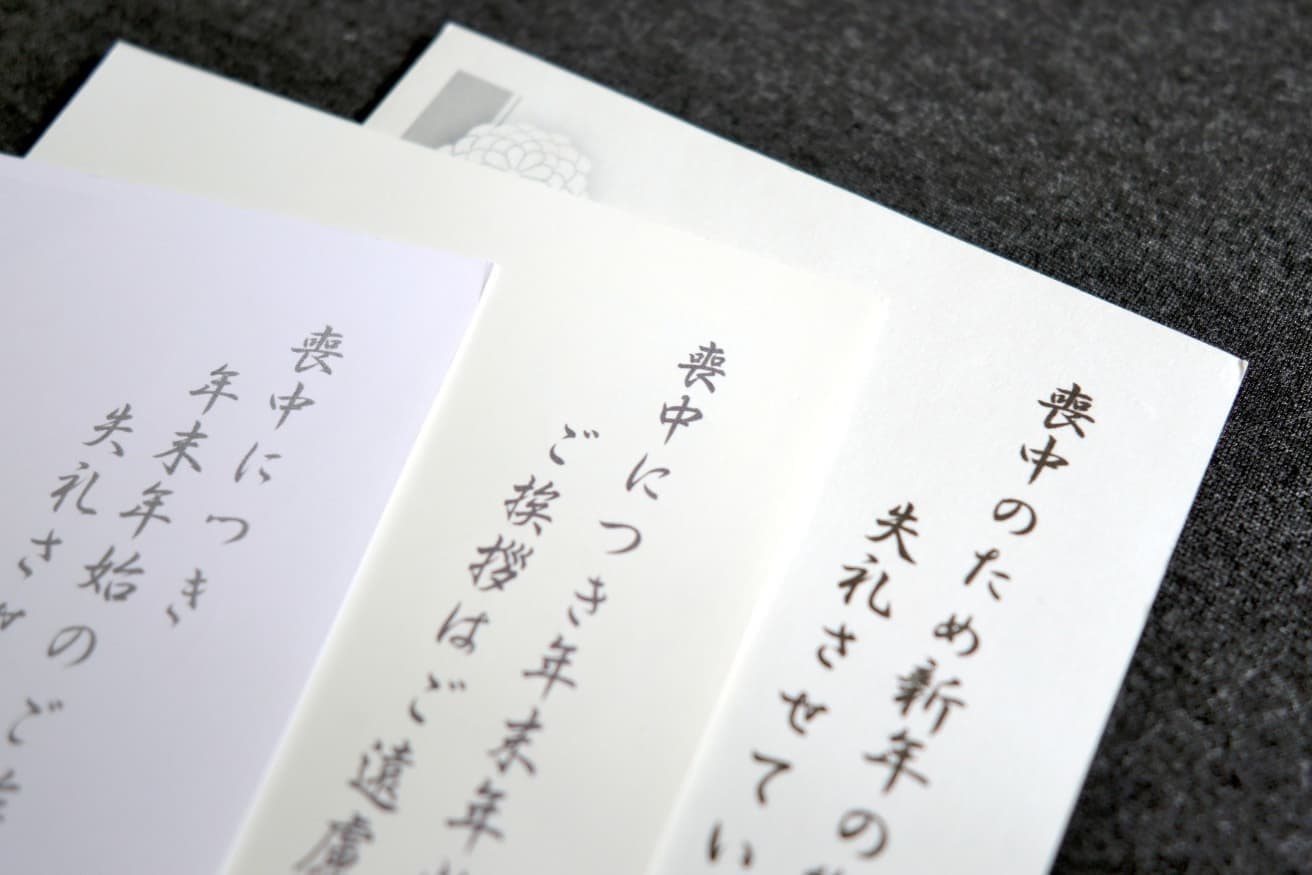 喪中のため新年の
失礼させてい
喪中につき年末年
ご挨拶はご遠慮
喪中につき
年末年始のご
失礼させ